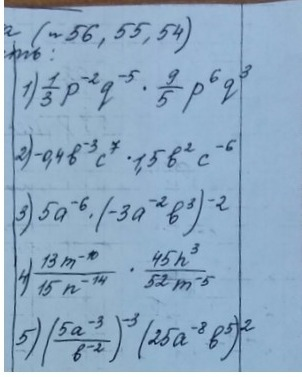 (~56, 55, 54)
1) 1/3 p⁻² q⁻⁵ · 9/5 p⁶ q³
2) -0,4 в⁻³ c⁷ · 1,5 в² c⁻⁶
3) 5a⁻⁶ · (-3a⁻² в³)⁻²
4) 13m⁻¹⁰/15n⁻¹⁴ · 45n³/52m⁻⁵
5) (5a⁻³/в⁻²)⁻³ (25a⁻⁸ в⁵)²